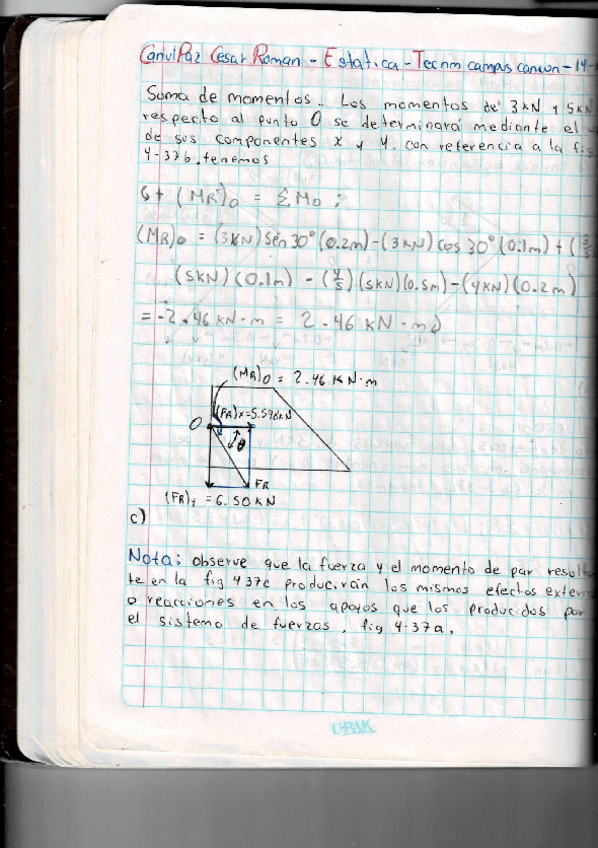 Canul Paz Cesar Roman - Estatica - Tecnm campus cancun - 14-
Suma de momentos.. Los momentos de 3kN y 5kN
respecto al punto O se determinará mediante el
de sus componentes x y y. con referencia a la fig
4-37b. tenemos
↺+ (MR)o = ΣMo ;
(MR)o = (3kN) Sen 30° (0.2m) - (3kN) cos 30° (0.1m) + (3/5
(5kN) (0.1m) - (4/5) (5kN) (0.5m) - (4kN) (0.2m)
= -2.46 kN·m = 2.46 kN·m↻
(MR)o = 2.46 KN·m
(FR)x = 5.598kN
O
θ
FR
(FR)y = 6.50KN
c)
Nota: observe que la fuerza y el momento de par result
te en la fig 437c producirán los mismos efectos extern
o reacciones en los apoyos que los producidos por
el sistema de fuerzas, fig 4-37a.